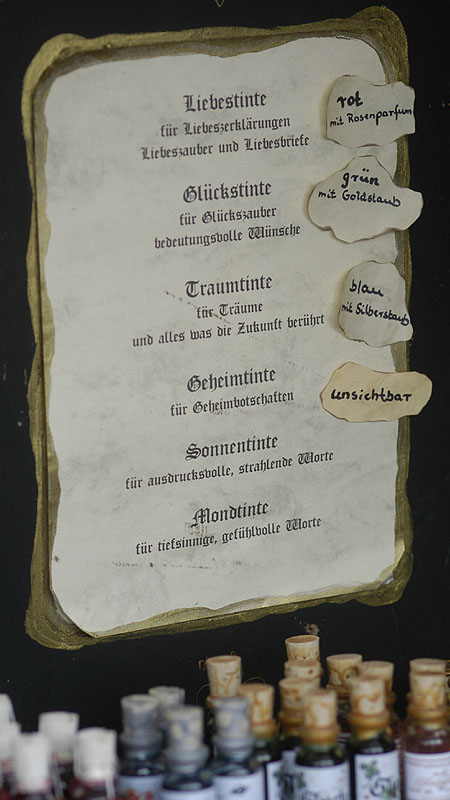 Liebestinte
für Liebeszerklärungen
Liebeszauber und Liebesbriefe
rot
mit Rosenparfum
Glückstinte
für Glückszauber
bedeutungsvolle Wünsche
grün
mit Goldstaub
Traumtinte
für Träume
und alles was die Zukunft berührt
blau
mit Silberstaub
Geheimtinte
für Geheimbotschaften
unsichtbar
Sonnentinte
für ausdrucksvolle, strahlende Worte
Mondtinte
für tiefsinnige, gefühlvolle Worte